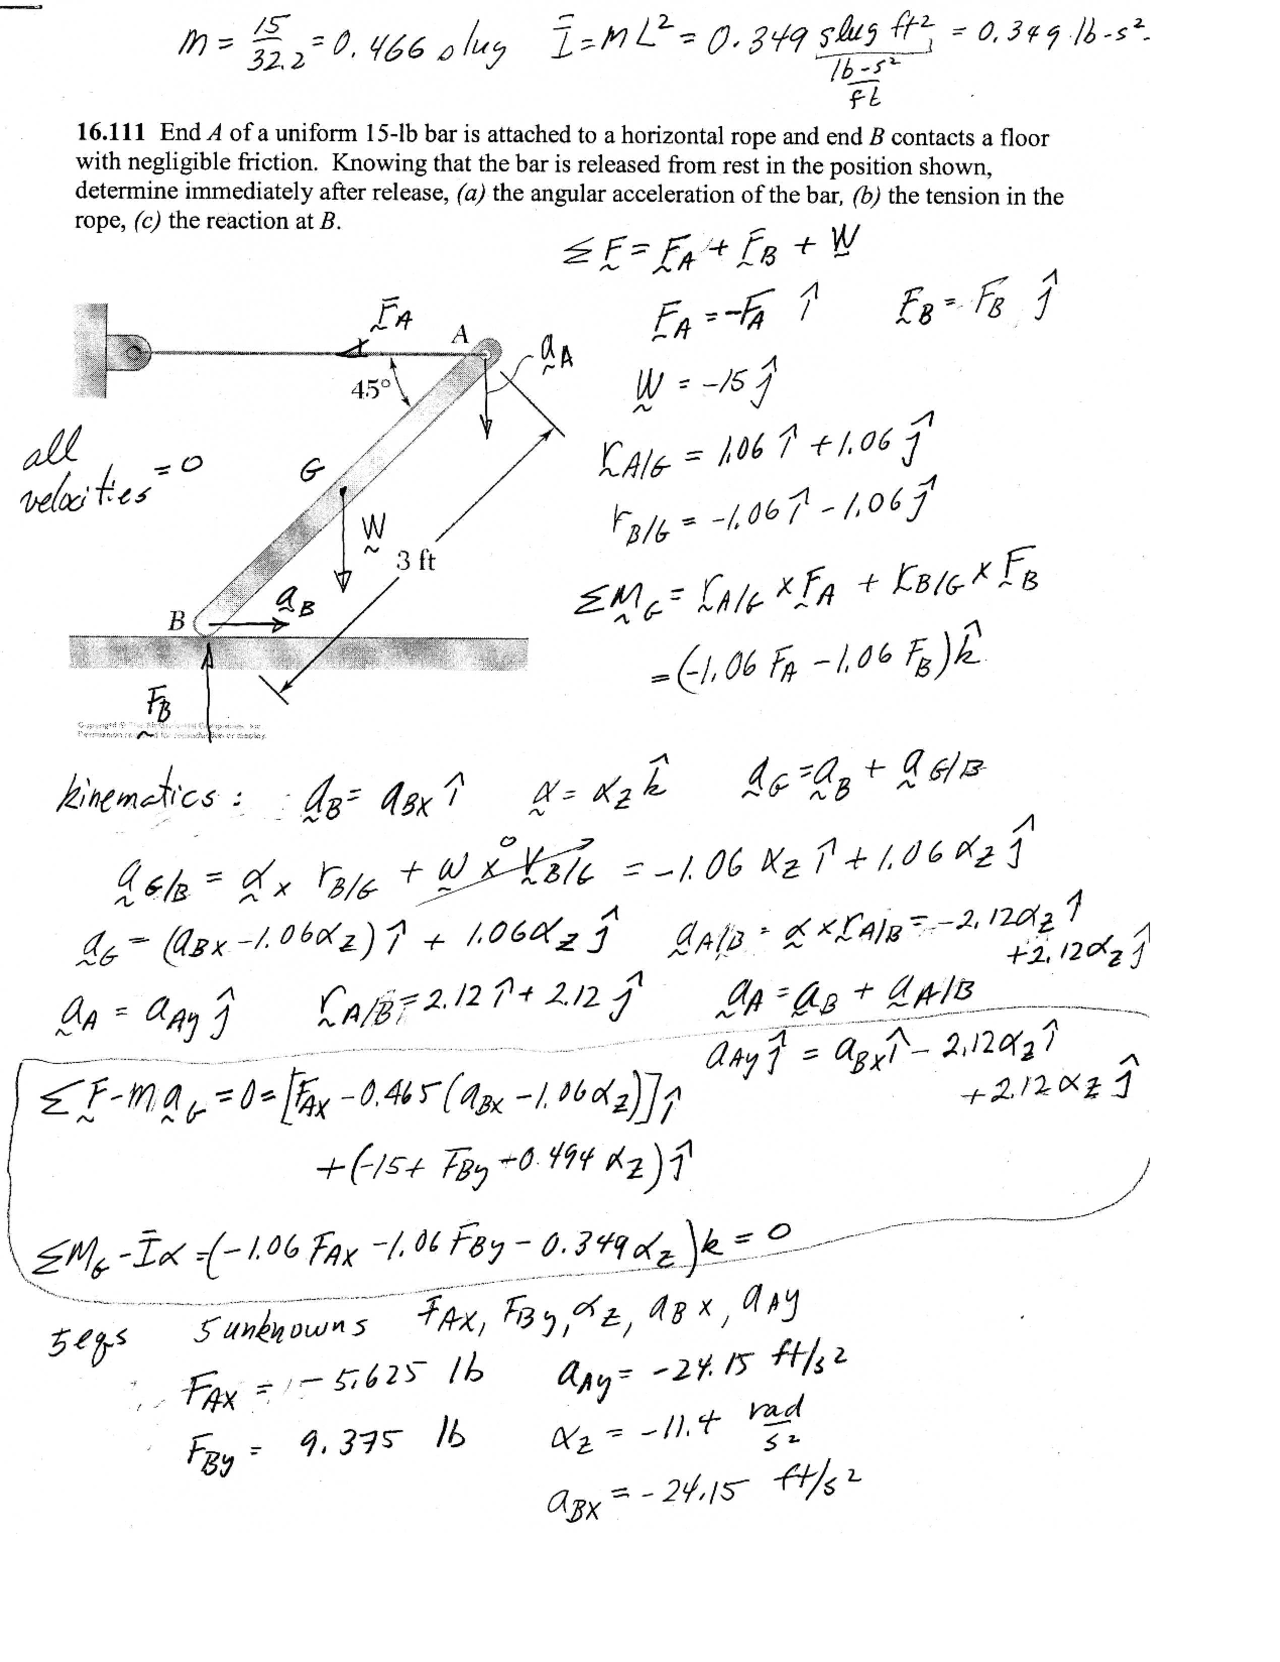 m = 15/32.2 = 0.466 slug   Ī = mL² = 0.349 slug ft² / (lb-s²/ft) = 0.349 lb-s².
16.111 End A of a uniform 15-lb bar is attached to a horizontal rope and end B contacts a floor
with negligible friction. Knowing that the bar is released from rest in the position shown,
determine immediately after release, (a) the angular acceleration of the bar, (b) the tension in the
rope, (c) the reaction at B.
ΣF = F_A + F_B + W
F_A = -F_A î   F_B = F_B ĵ
W = -15 ĵ
r_A/G = 1.06 î + 1.06 ĵ
r_B/G = -1.06 î - 1.06 ĵ
ΣM_G = r_A/G × F_A + r_B/G × F_B
= (-1.06 F_A - 1.06 F_B) k̂
F_A
A
a_A
45°
all
velocities = 0
G
W
3 ft
a_B
B
F_B
kinematics: a_B = a_BX î   α = α_z k̂   a_G = a_B + a_G/B
a_G/B = α × r_B/G + ω × V_B/G 0 = -1.06 α_z î + 1.06 α_z ĵ
a_G = (a_BX - 1.06 α_z) î + 1.06 α_z ĵ   a_A/B = α × r_A/B = -2.12 α_z î
+2.12 α_z ĵ
a_A = a_Ay ĵ   r_A/B = 2.12 î + 2.12 ĵ   a_A = a_B + a_A/B
a_Ay ĵ = a_BX î - 2.12 α_z î
+2.12 α_z ĵ
ΣF - m a_G = 0 = [F_AX - 0.465 (a_BX - 1.06 α_z)] î
+ (-15 + F_By - 0.494 α_z) ĵ
ΣM_G - Īα = (-1.06 F_AX - 1.06 F_By - 0.349 α_z) k = 0
5 eqs   5 unknowns   F_AX, F_By, α_z, a_BX, a_Ay
F_AX = - 5.625 lb   a_Ay = -24.15 ft/s²
F_By = 9.375 lb   α_z = -11.4 rad/s²
a_BX = -24.15 ft/s²